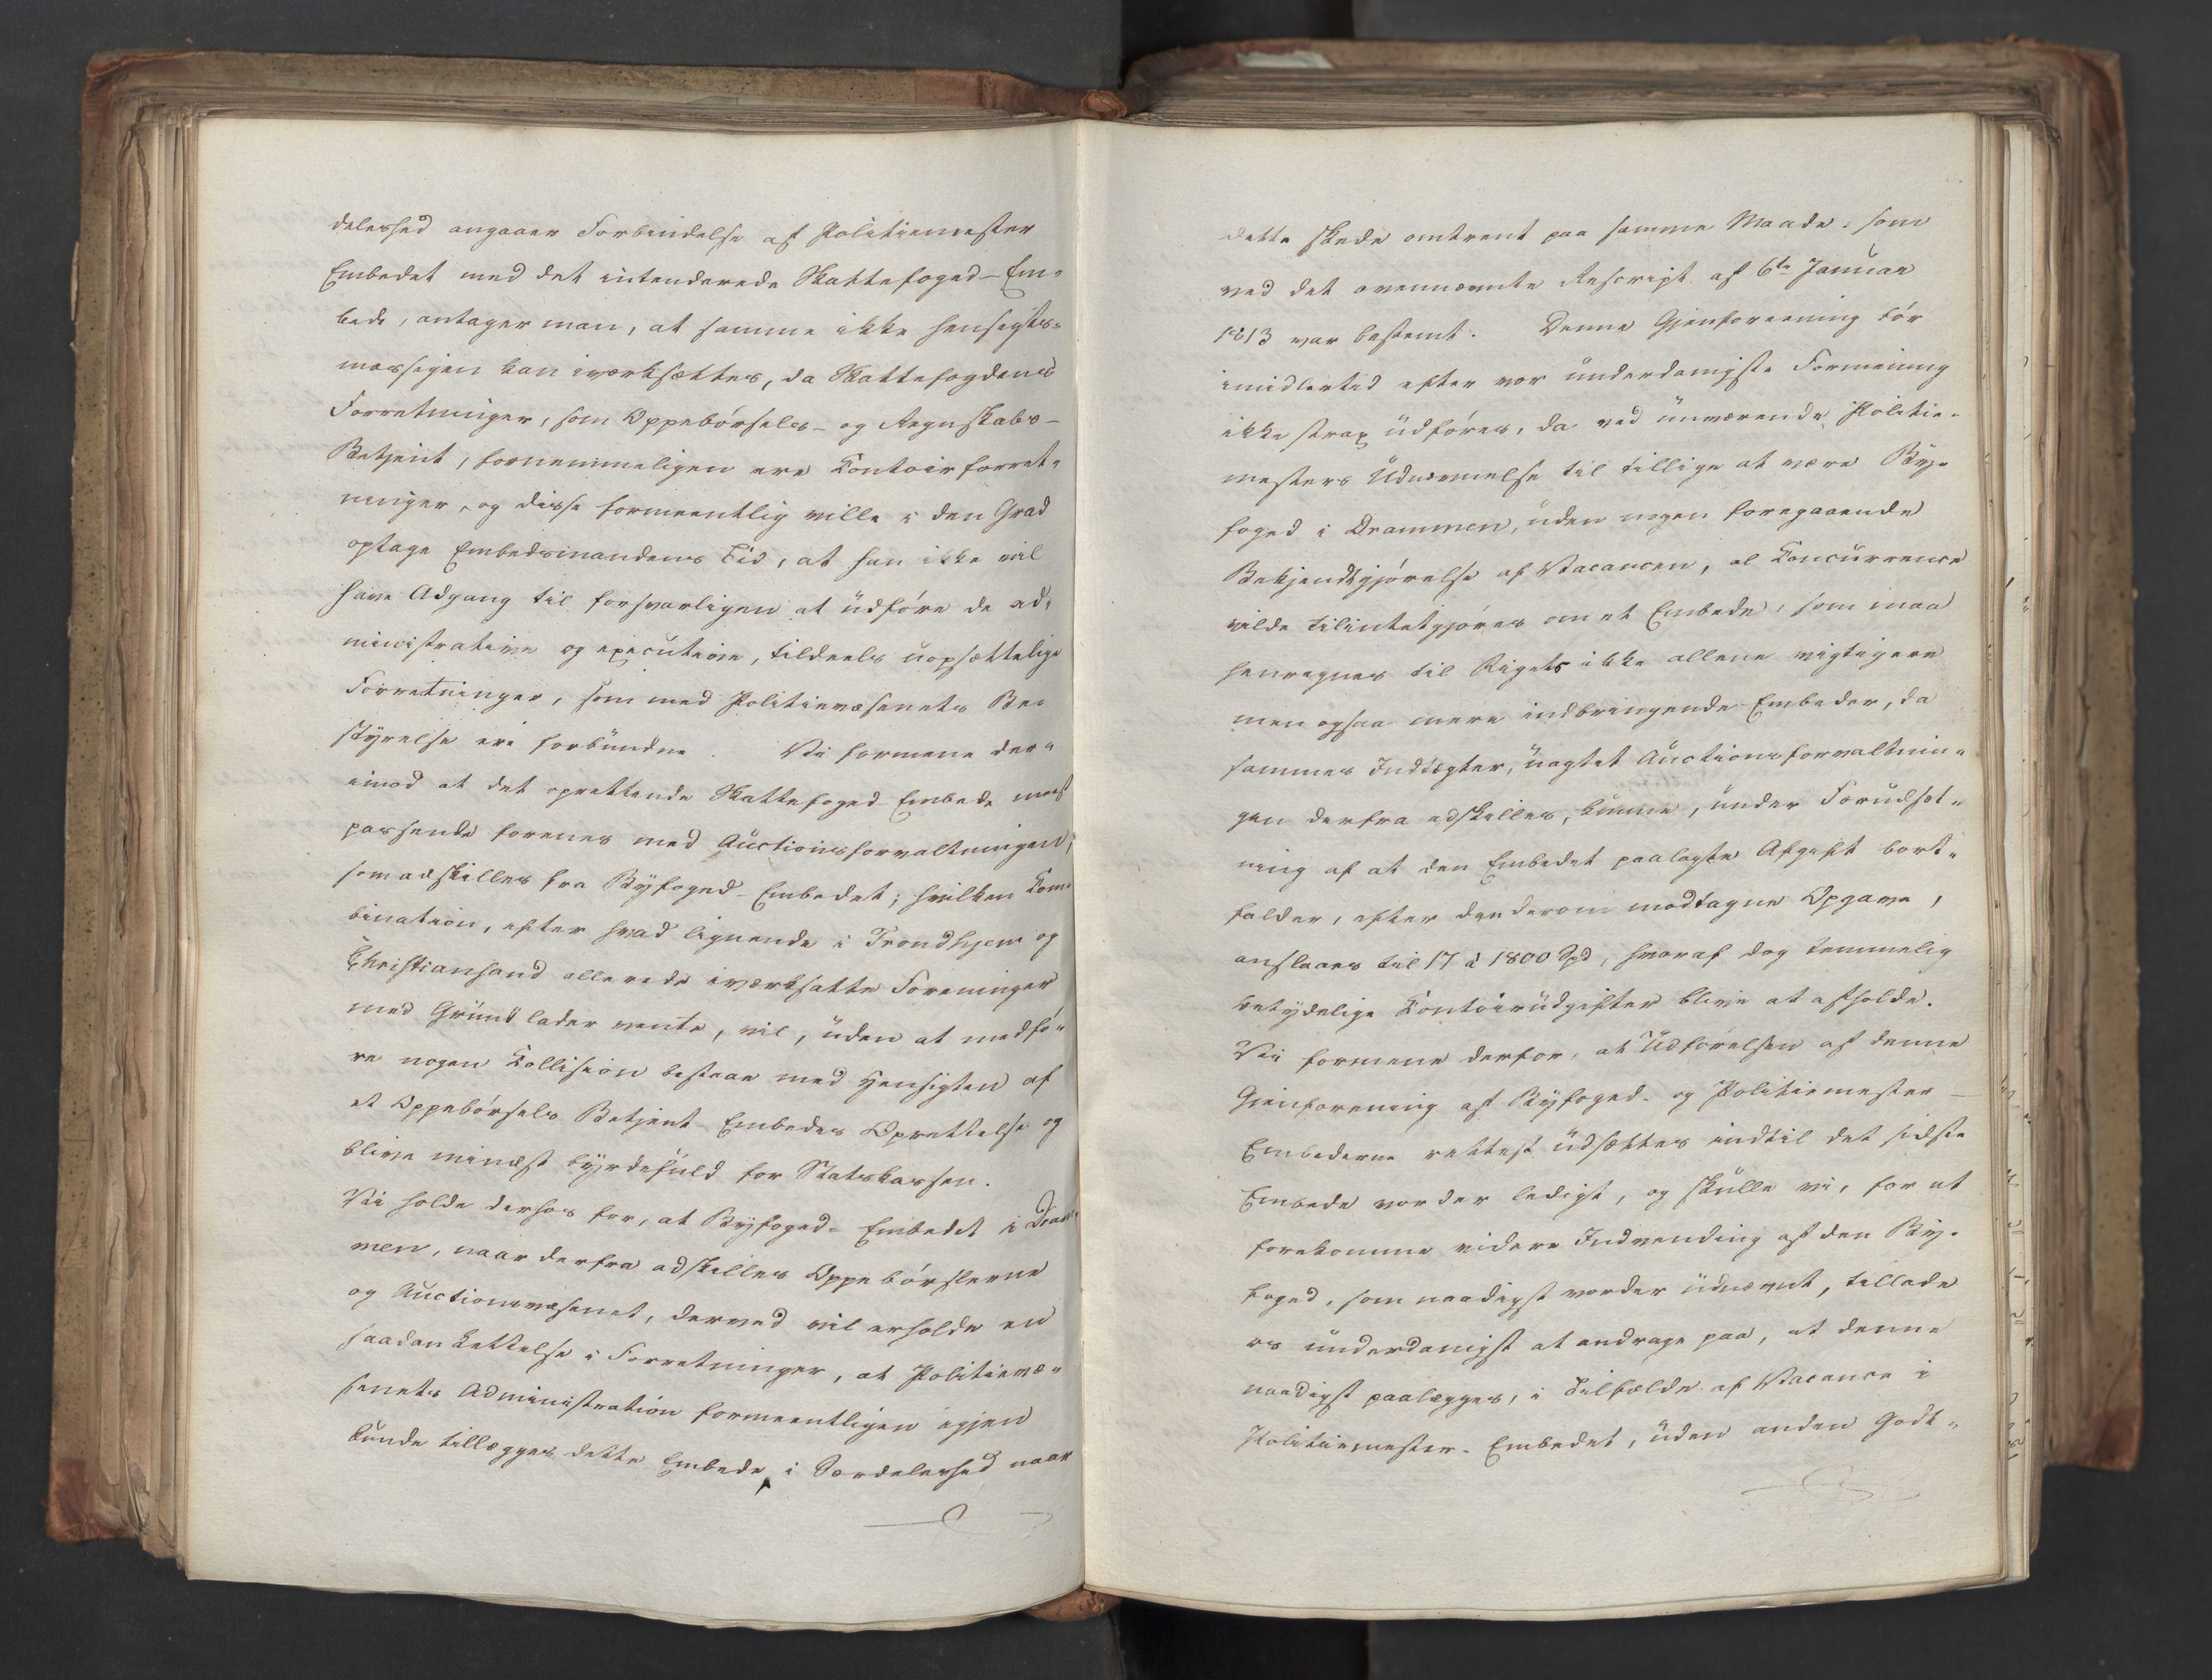 deleshed angaaer Forbindelse af Politiemester
Embedet med det intenderede Skattefoged-Em-
bede, antager man, at samme ikke hensigts-
mæssigen kan iværksættes, da Skattefogdens
Forretninger, som Oppebørsels- og Regnskabs-
Betjent, fornemmeligen ere Contoirforret-
ninger, og disse formeentlig ville i den Grad
optage Embedsmandens Tid, at han ikke vil
have Adgang til forsvarligen at udføre de ad-
ministrative og executive, tildeels uopsættelige
Forretninger, som med Politievæsenets Be-
styrelse ere forbundne. Vi formene der-
imod at det oprettende Skattefoged-Embede meest
passende forenes med Auctionsforvaltningen,
som adskilles fra Byfoged-Embedet; hvilken Com-
bination, efter hvad lignende i Trondhjem og
Christiansand allerede iværksatte Foreninger
med Grund lader vente, vil, uden at medfø-
re nogen Collision bestaae med Hensigten af
et Oppebørsels Betjent-Embedes Oprettelse og
blive mindst byrdefuld for Statskassen.
Vi holde derhos for, at Byfoged-Embedet i Dram-
men, naar derfra adskilles Oppebørslerne
og Auctionsvæsenet, derved vil erholde en
saadan Lettelse i Forretninger, at Politievæ-
senets Administration formeentligen igjen
kunde tillægges dette Embede, i Særdeleshed naar
dette skede omtrent paa samme Maade, som
ved det ovennævnte Rescript af 6te Januar
1813 var bestemt. Denne Gjenforeening bør
imidlertid efter vor underdanigste Formening
ikke strax udføres, da ved nuværende Politie-
mesters Udnævnelse til tillige at være By-
foged i Drammen, uden nogen foregaaende
Bekjendtgjørelse af Vacancen, al Concurrence
vilde tilintetgjøres om et Embede, som maa
henregnes til Rigets ikke allene vigtigere
men ogsaa mere indbringende Embeder, da
sammes Indtægter, uagtet Auctionsforvaltnin-
gen derfra adskilles, kunne, under Forudsæt-
ning af at den Embedet paalagte Afgift bort-
falder, efter den derom modtagne Opgave,
anslaaes til 17 à 1800 Spd, hvoraf dog temmelig
betydelige Contoirudgifter blive at afholde.
Vi formene derfor, at Udførelsen af denne
Gjenforening af Byfoged- og Politiemester-
Embederne rettest udsættes indtil det sidste
Embede vorder ledigt, og skulle vi, for at
forekomme videre Indvending af den By-
foged, som naadigst vorder udnævnt, tillade
os underdanigst at andrage paa, at denne
naadigst paalægges, i Tilfælde af Vacance i
Politiemester-Embedet, uden anden Godt-